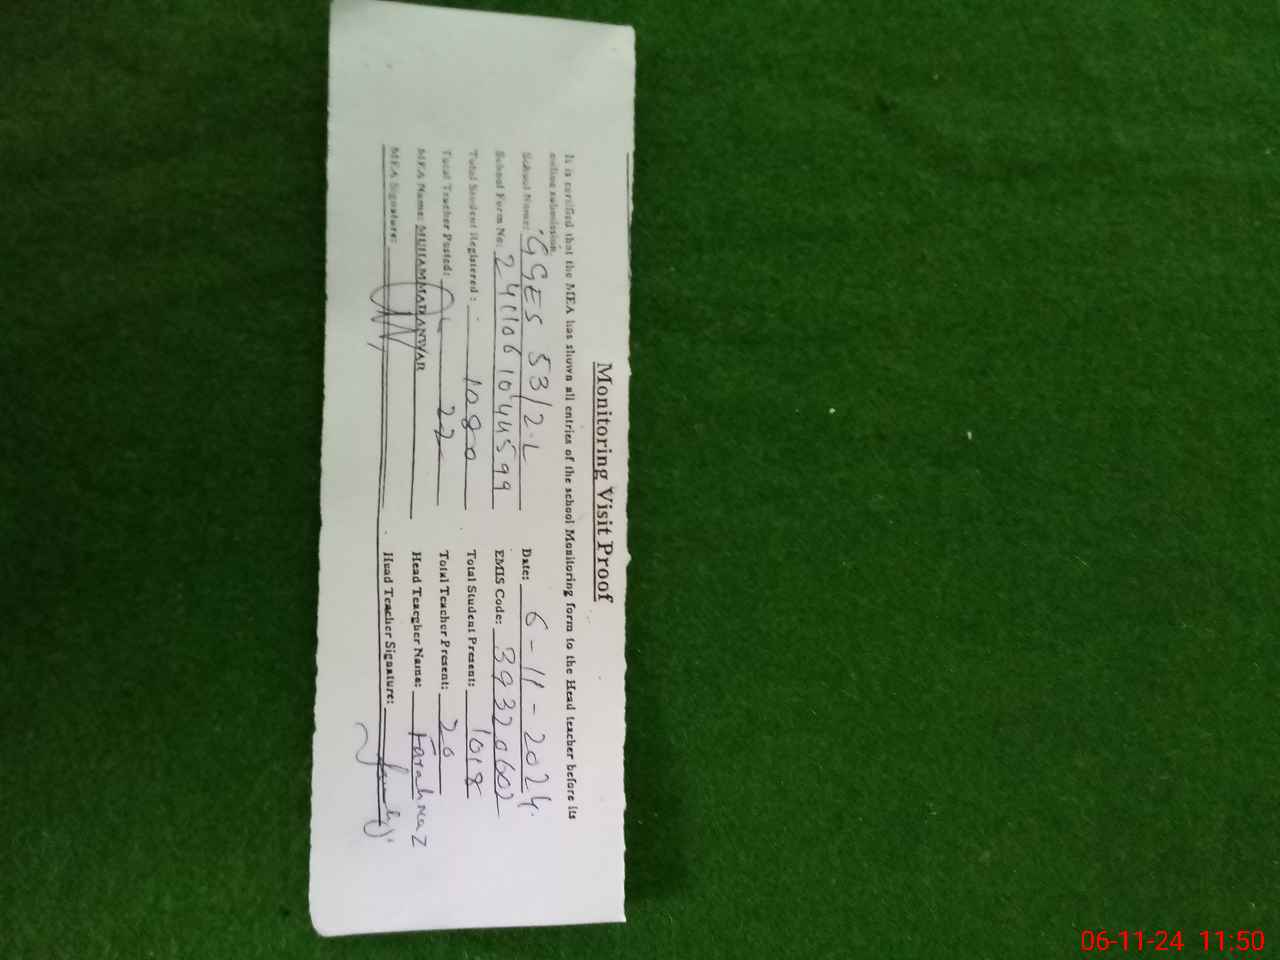 Monitoring Visit Proof
It is certified that the MEA has shown all entries of the school Monitoring form to the Head teacher before its
online submission.
School Name: GGES 53/2.L Date: 6-11-2024.
School Form No: EMIS Code: 39320602
Total Student Registered: 1080 Total Student Present: 1018
Total Teacher Posted: 22 Total Teacher Present: 20
MEA Name: MUHAMMAD ANWAR Head Teacgher Name: Farahnaz
MEA Signature: Head Teacher Signature:
06-11-24 11:50